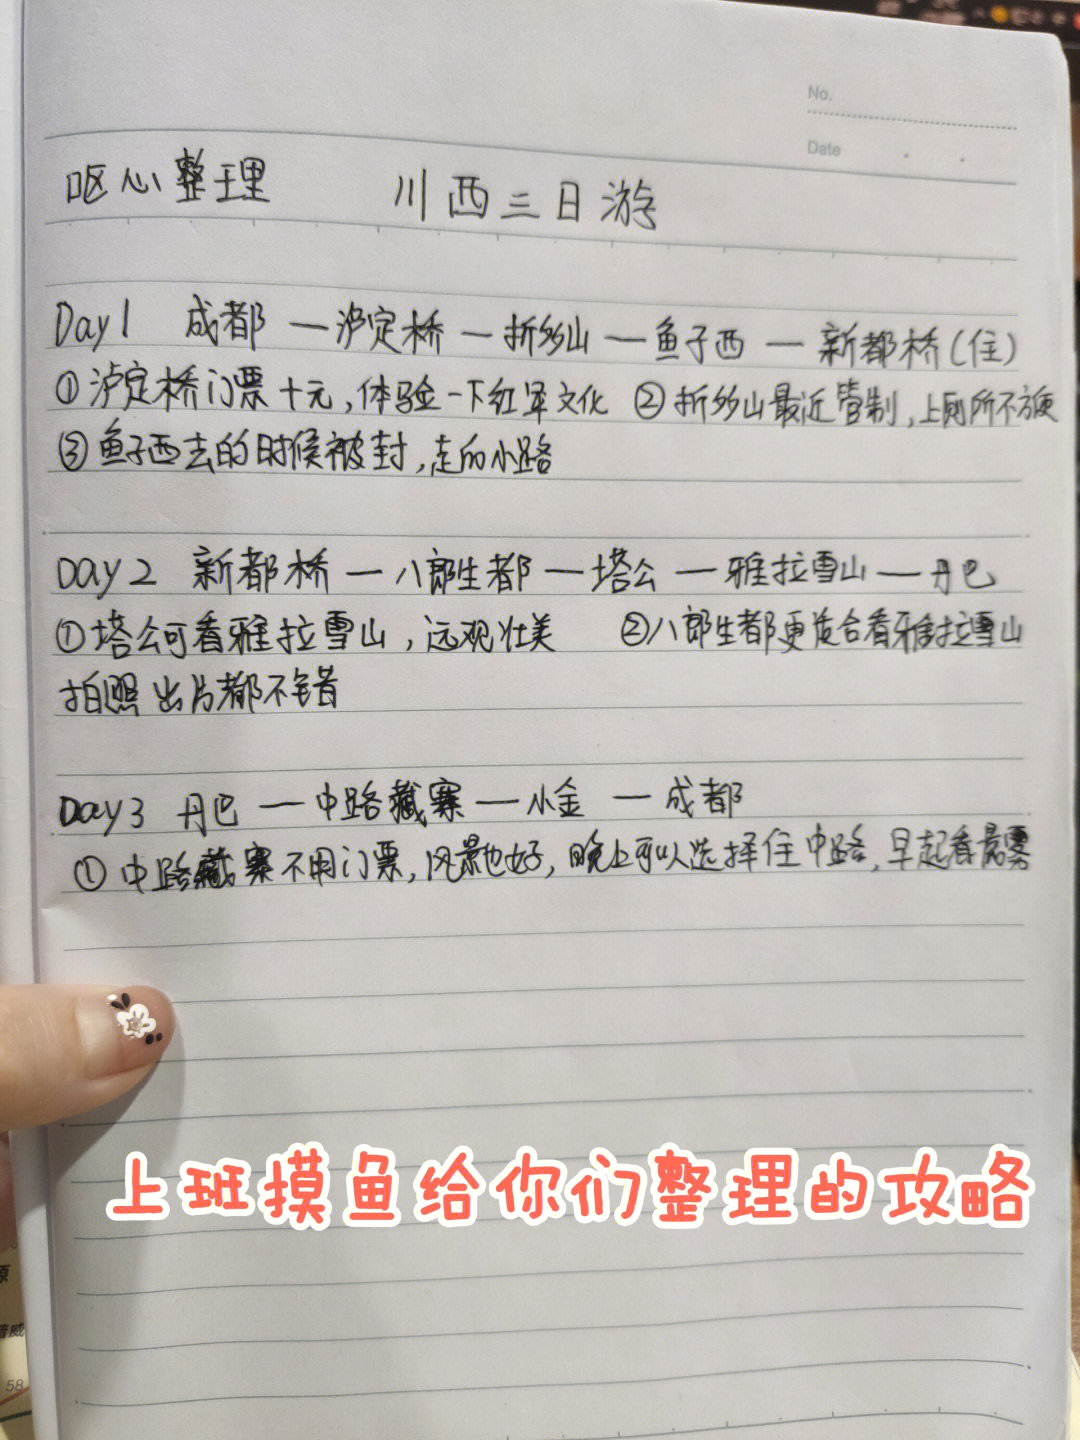 No.
Date
呕心整理 川西三日游
Day1 成都 — 泸定桥 — 折多山 — 鱼子西 — 新都桥(住)
①泸定桥门票十元,体验一下红军文化 ②折多山最近管制,上厕所不方便
③鱼子西去的时候被封,走的小路
Day2 新都桥 — 八郎生都 — 塔公 — 雅拉雪山 — 丹巴
①塔公可看雅拉雪山,远观壮美 ②八郎生都更适合看雅拉雪山
拍照出片都不错
Day3 丹巴 — 中路藏寨 — 小金 — 成都
①中路藏寨不用门票,风景也好,晚上可以选择住中路,早起看晨雾
上班摸鱼给你们整理的攻略
原
普威
58